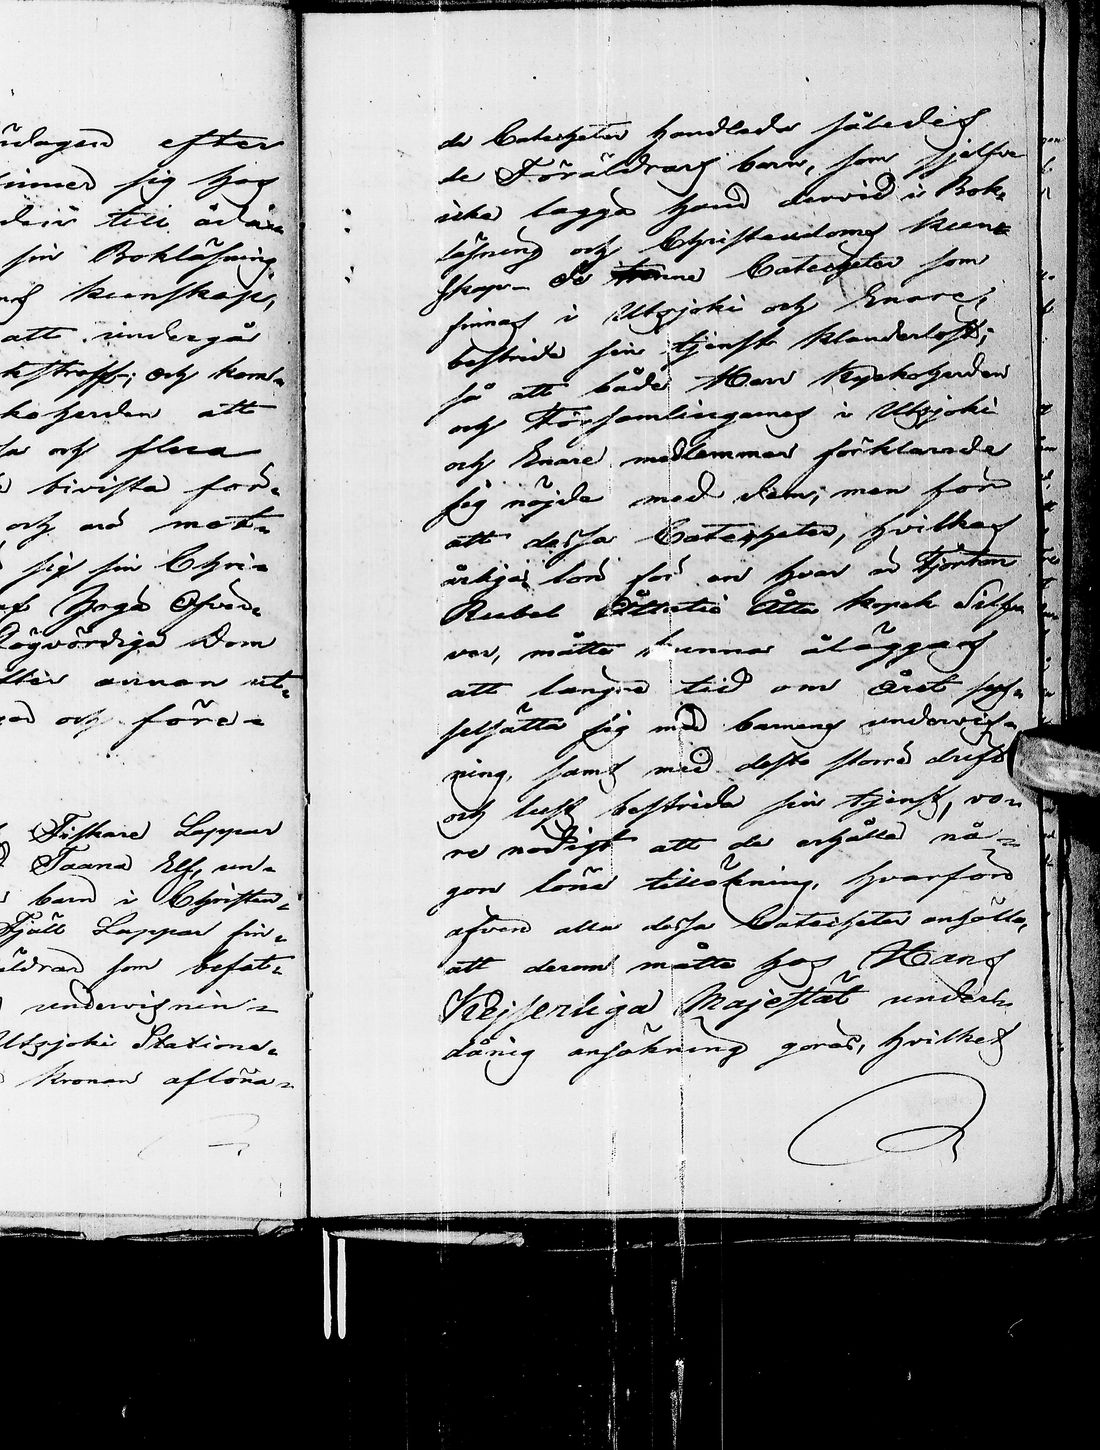 dagen efter
finner sig hos
deis till ådö-
sin Bokläsning
kunskap,
att undergå
kstraff; och kom-
koherden att
sa och flera
bivista för-
och mot-
sig sin Chri-
Inga Öfver-
högvördiga Dom
efter annan ut-
och före-
Fiskare Lappar
Taana Elf, un-
barn i Christen-
Fjäll Lappar fin-
äldrar som befat-
undervisnin-
Utsjoki Stations-
Kronan aflöna-
de Catecheter handleda således
de Föräldrars barn, som sjelfve
icke lägga hand dervid i Bok-
läsning och Christendoms kun-
skap. De trenne Catecheter som
finnas i Utsjoki och Enare,
bestrida sin tjenst klanderlöst;
så att både Herr Kyrkoherden
och Församlingarnes i Utsjoki
och Enare medlemmar förklarade
sig nöjde med dem; men för
att dessa Catecheter, hvilkas
årliga lön för en hvar är Fjorton
Rubel Åttatio Åtta kopek Silf-
ver, måtte kunna åläggas
att längre tid om Året sys-
selsätta sig med barnens undervis-
ning, samt med desto större drift
och lust bestrida sin tjenst, vo-
re nödigt att de erhålla nå-
gon löne tillökning, hvarföre
äfven alla dessa Catecheter anhålla,
att derom måtte hos Hans
Kejserliga Majestät under-
dånig ansökning göras, hvilket